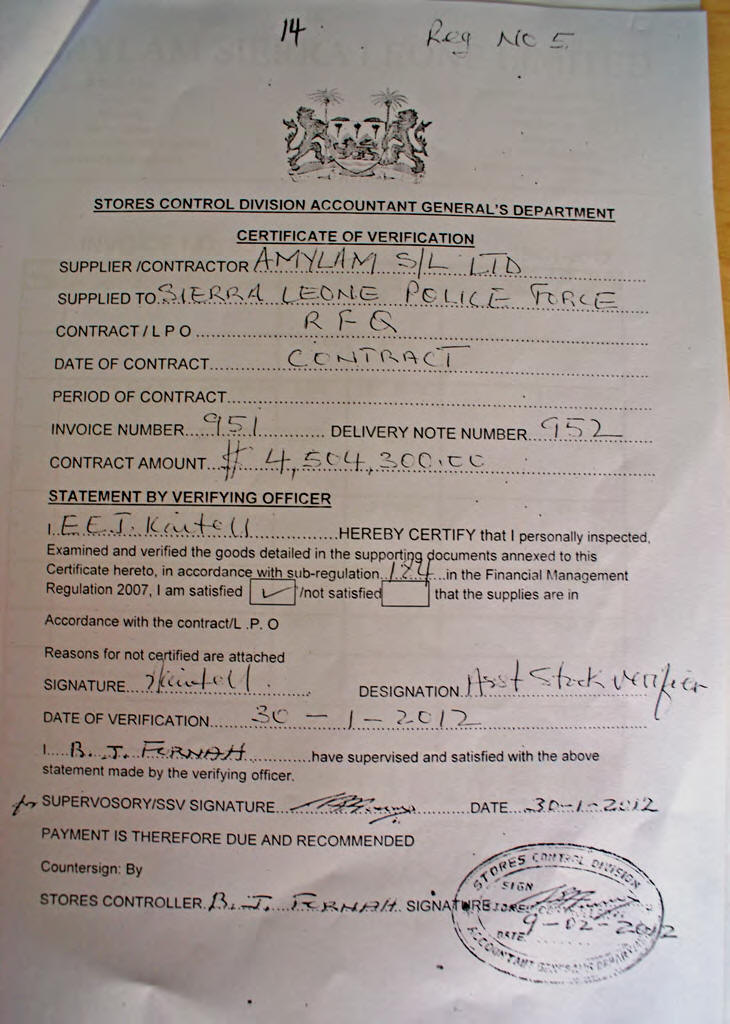 14 Reg NO 5
STORES CONTROL DIVISION ACCOUNTANT GENERAL'S DEPARTMENT
CERTIFICATE OF VERIFICATION
SUPPLIER /CONTRACTOR AMYLAM S/L LTD
SUPPLIED TO SIERRA LEONE POLICE FORCE
CONTRACT / L P O RFQ
DATE OF CONTRACT CONTRACT
PERIOD OF CONTRACT
INVOICE NUMBER 951 DELIVERY NOTE NUMBER 952
CONTRACT AMOUNT $ 4,504,300.00
STATEMENT BY VERIFYING OFFICER
I E.E.J. HEREBY CERTIFY that I personally inspected,
Examined and verified the goods detailed in the supporting documents annexed to this
Certificate hereto, in accordance with sub-regulation 124 in the Financial Management
Regulation 2007, I am satisfied ✓ /not satisfied that the supplies are in
Accordance with the contract/L .P. O
Reasons for not certified are attached
SIGNATURE DESIGNATION Asst Stock Verifier
DATE OF VERIFICATION 30 - 1 - 2012
I B. J. FORNAH have supervised and satisfied with the above
statement made by the verifying officer.
for SUPERVOSORY/SSV SIGNATURE DATE 30-1-2012
PAYMENT IS THEREFORE DUE AND RECOMMENDED
Countersign: By
STORES CONTROLLER B. J. FORNAH SIGNATURE
STORES CONTROL DIVISION
SIGN
DATE 9-02-2012
ACCOUNTANT GENERAL'S DEPARTMENT